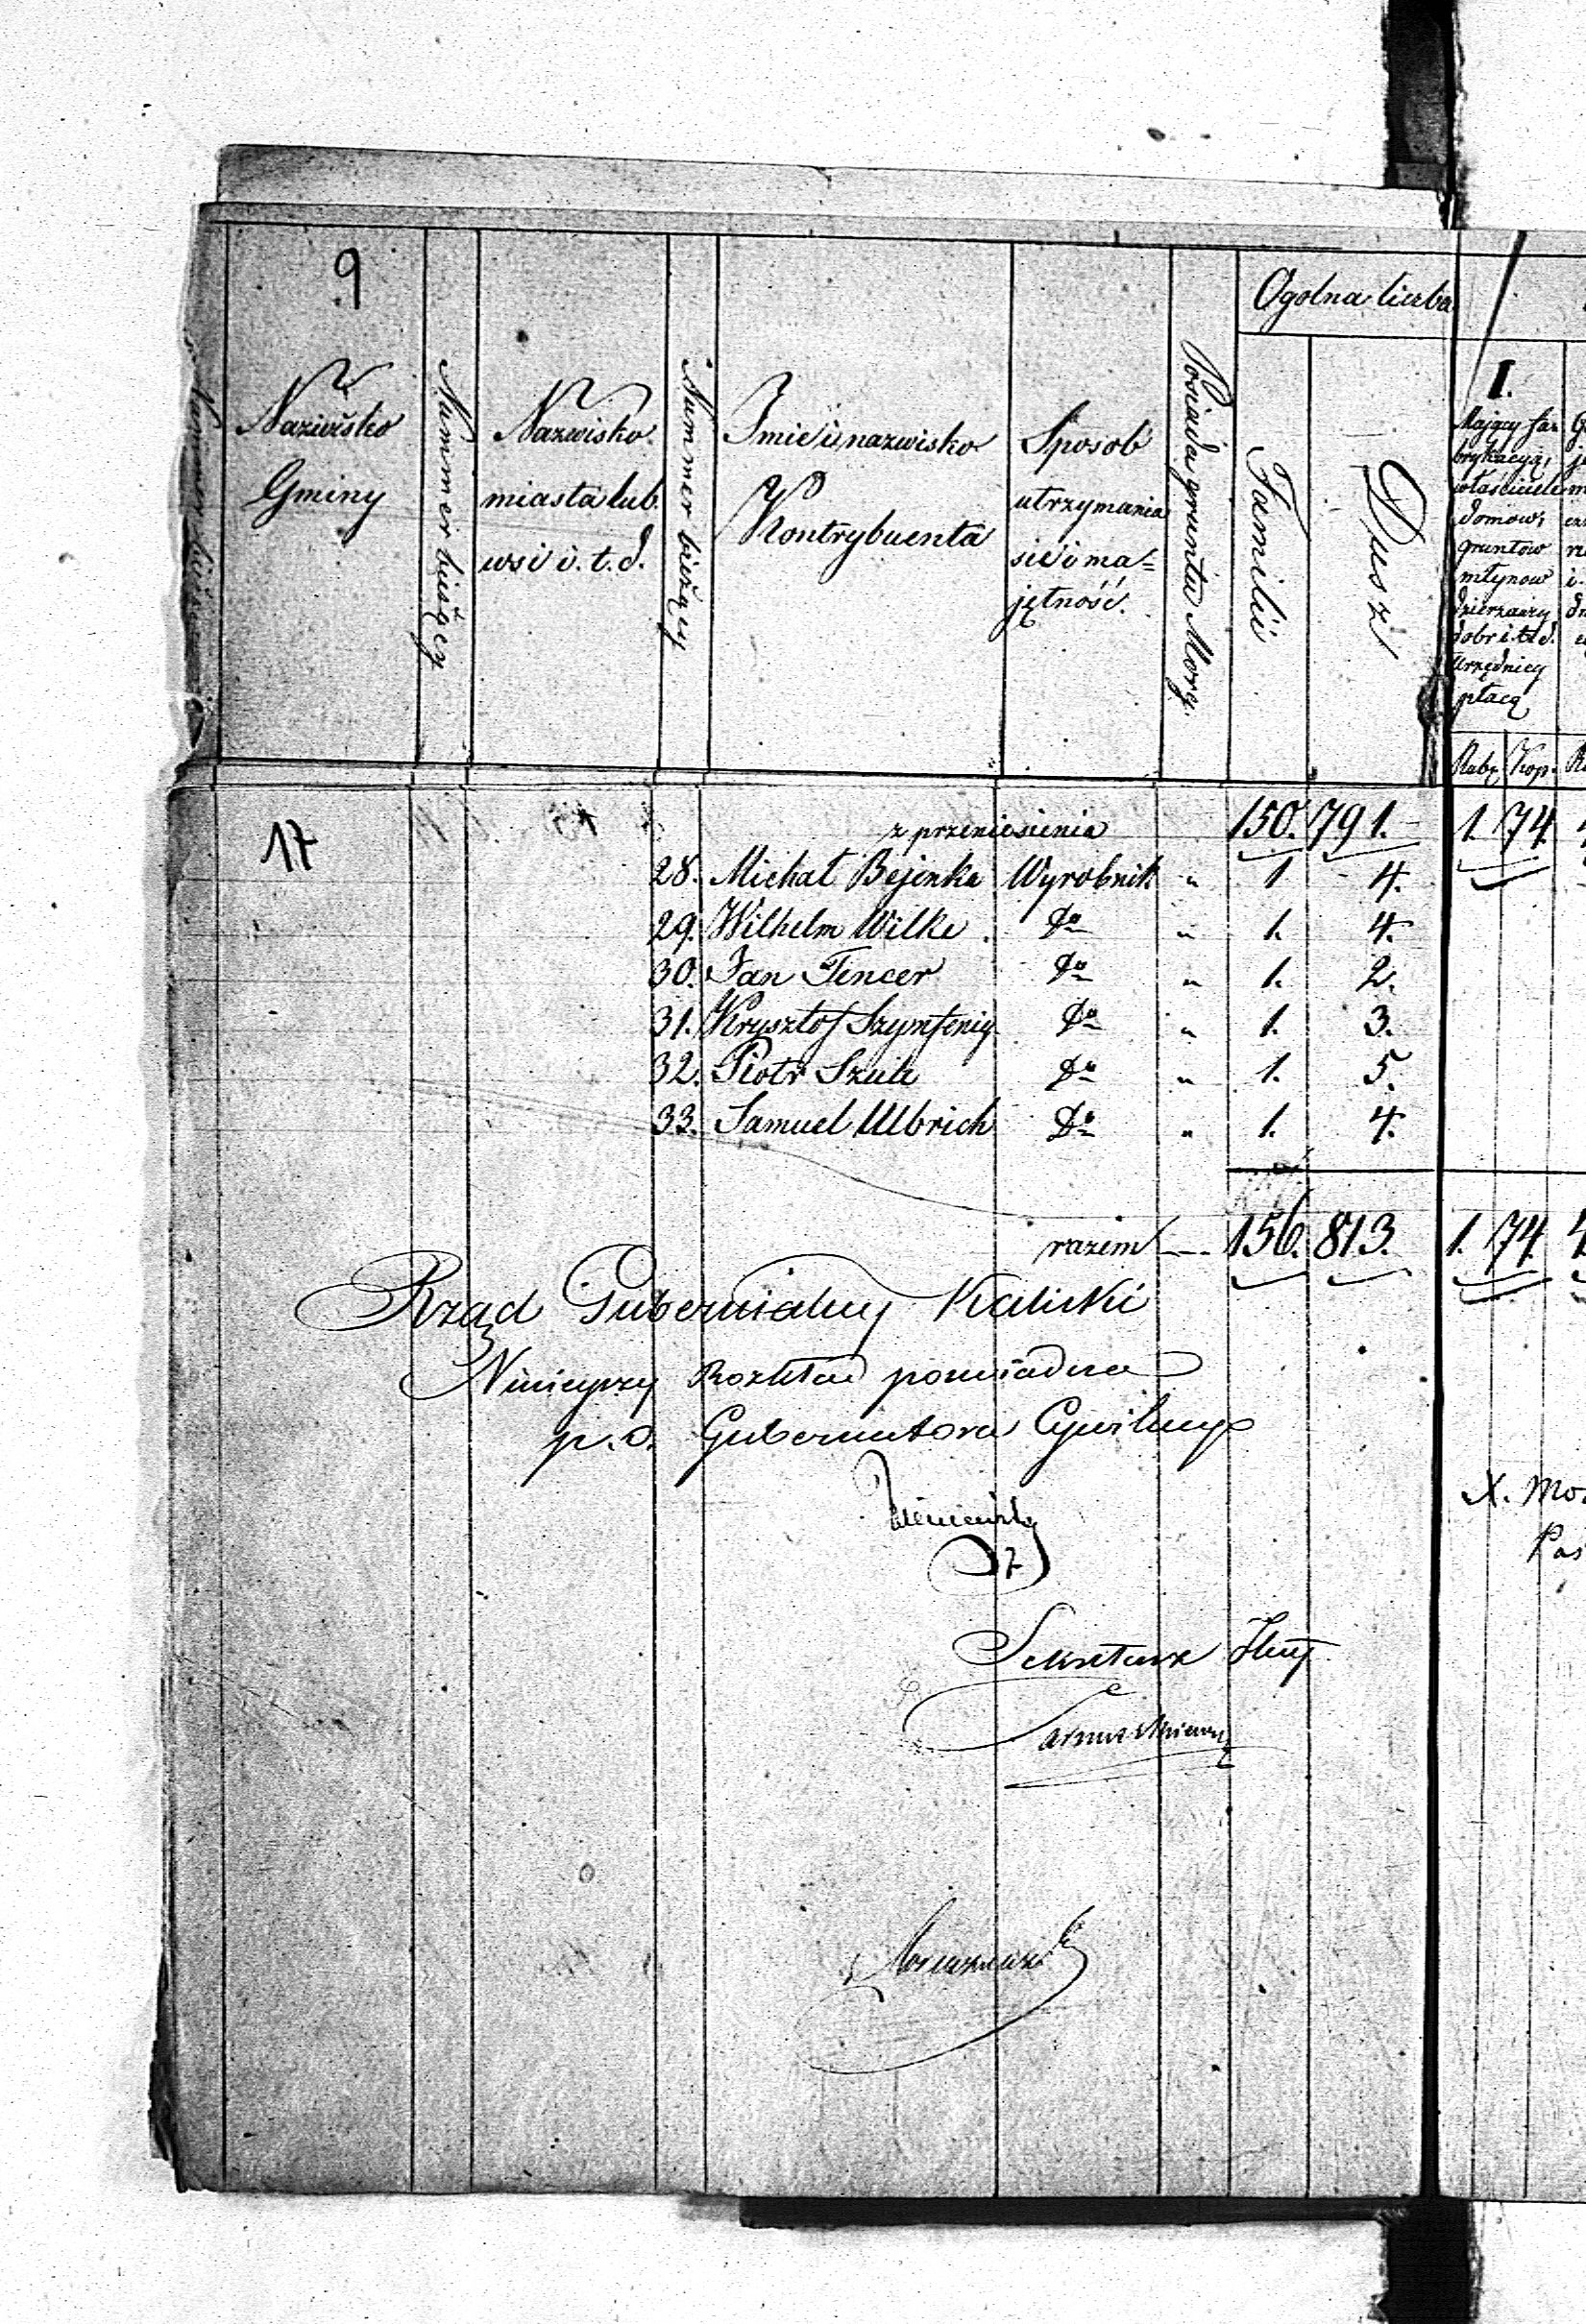 9
Ogolna liczba
Nazwisko
Gminy
Nummer bieżący
Nazwisko
miasta lub
wsi i. t. d.
Nummer bieżący
Imie i nazwisko
Kontrybuenta
Sposob
utrzymania
sie i ma=
jętność.
Posiada gruntu Morg.
Familii
Dusz
I.
Mający fa=
brykacyą,
właściciele
domow,
gruntow
młynow
dzierzawcy
dobr i. t. d.
urzędnicy
płacą
Rub. Kop.
17
z przeniesienia 150. 791. 1. 74.
28. Michał Bejenka Wyrobnik " 1 4.
29. Wilhelm Wilke do " 1. 4.
30. Jan Tencer do " 1. 2.
31. Krysztof Szynfenig do " 1. 3.
32. Piotr Szulc do " 1. 5.
33. Samuel Ulbrich do " 1. 4.
razem 156. 813. 1. 74.
Rząd Gubernialny Kaliski
Niniejszy Rozkład poswiadcza
p. o. Gubernatora Cywilnego
Sekretarz
X.